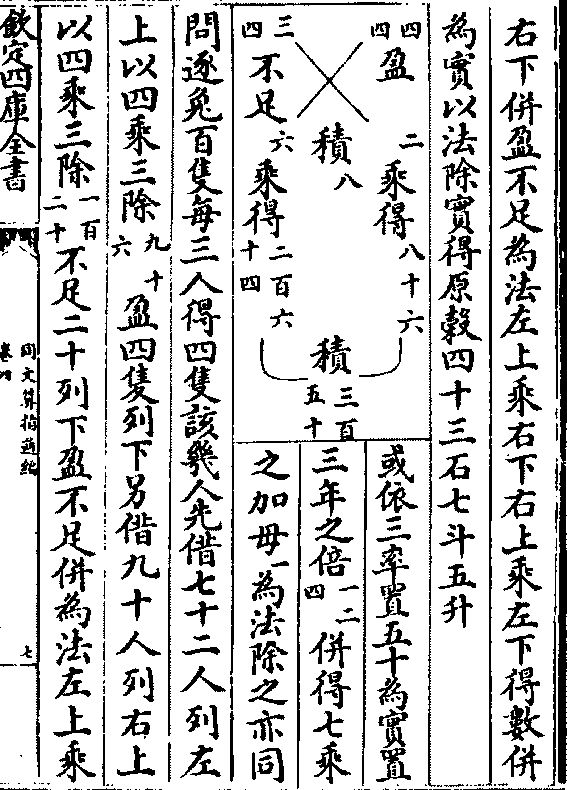 右下併盈不足為法左上乘右下右上乘左下得數併
為實以法除實得原穀四十三石七斗五升
四四 盈 二 乘得 八十六
三四 不足 六 乘得 二百六十四
積八
積 三百五十
或依三率置五十為實置
三年之倍一二四併得七乘
之加母一為法除之亦同
問逐兔百隻每三人得四隻該幾人先借七十二人列左
上以四乘三除九十六盈四隻列下另借九十人列右上
以四乘三除一百二十不足二十列下盈不足併為法左上乘
欽定四庫全書
同文算指通編
卷四
七